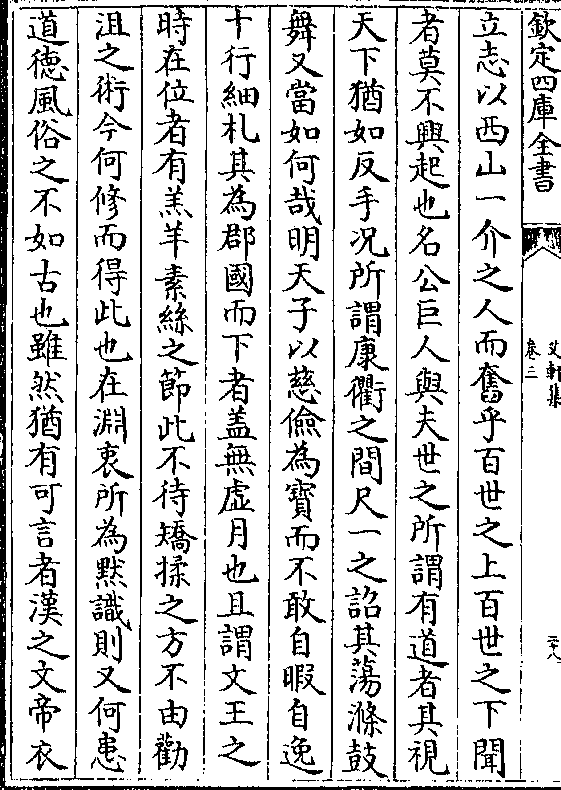 欽定四庫全書
艾軒集
卷三
二十八
立志以西山一介之人而奮乎百世之上百世之下聞
者莫不興起也名公巨人與夫世之所謂有道者其視
天下猶如反手况所謂康衢之間尺一之詔其蕩滌鼓
舞又當如何哉明天子以慈儉為寳而不敢自暇自逸
十行細札其為郡國而下者盖無虚月也且謂文王之
時在位者有羔羊素絲之節此不待矯揉之方不由勸
沮之術今何修而得此也在淵衷所為黙識則又何患
道徳風俗之不如古也雖然猶有可言者漢之文帝衣